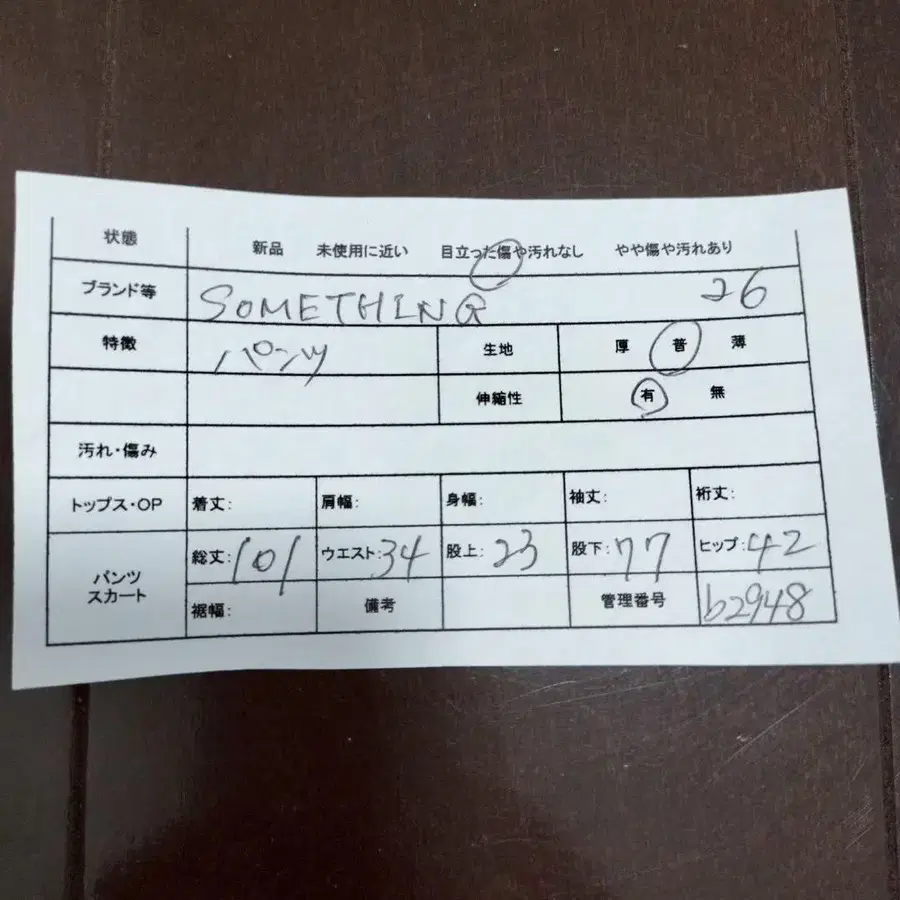 状態 新品 未使用に近い 目立った傷や汚れなし やや傷や汚れあり
ブランド等 SOMETHING 26
特徴 パンツ 生地 厚 普 薄
伸縮性 有 無
汚れ・傷み
トップス・OP 着丈: 肩幅: 身幅: 袖丈: 裄丈:
パンツ スカート 総丈:101 ウエスト:34 股上:23 股下:77 ヒップ:42
裾幅: 備考 管理番号 b2948